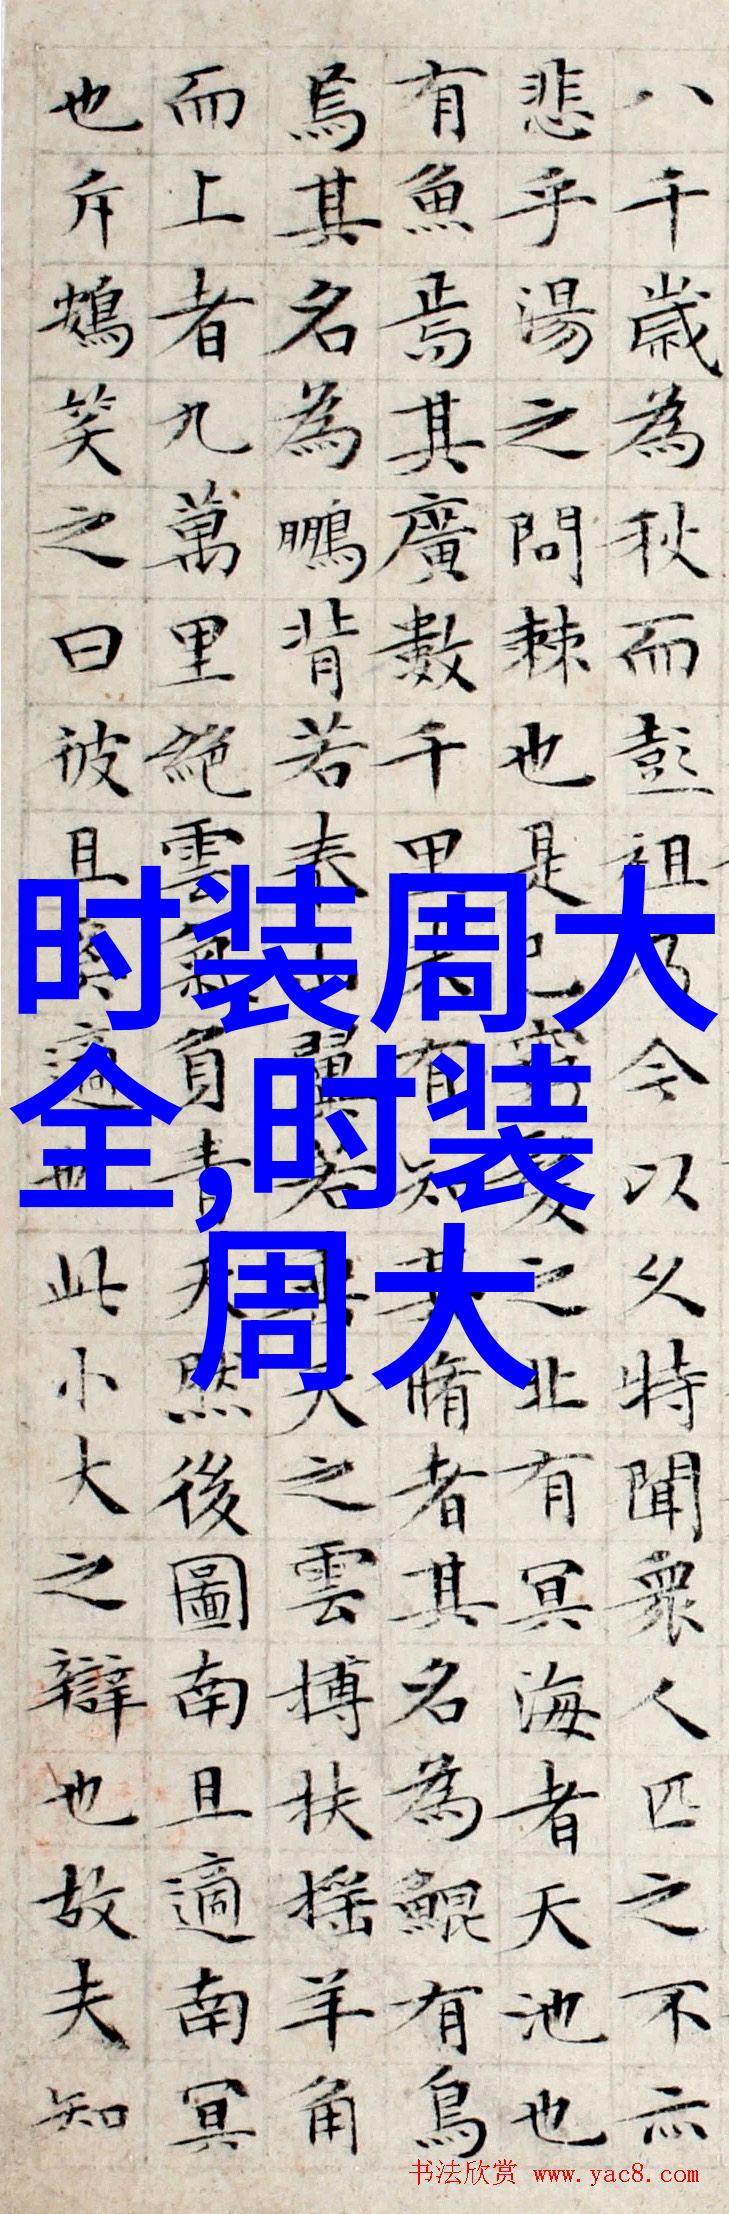 八千歲為秋而彭祖乃今以久特聞衆人匹之不亦
悲乎湯之問棘也是已窮髮之北有冥海者天池也
有魚焉其廣數千里未有知其脩者其名為鯤有鳥
焉其名為鵬背若泰山翼若垂天之雲搏扶摇羊角
而上者九萬里絕雲氣負青天然後圖南且適南冥
也斥鴳笑之曰彼且奚適也此小大之辯也故夫知
时装周大
全,时装
周大
书法欣赏 www.yac8.com